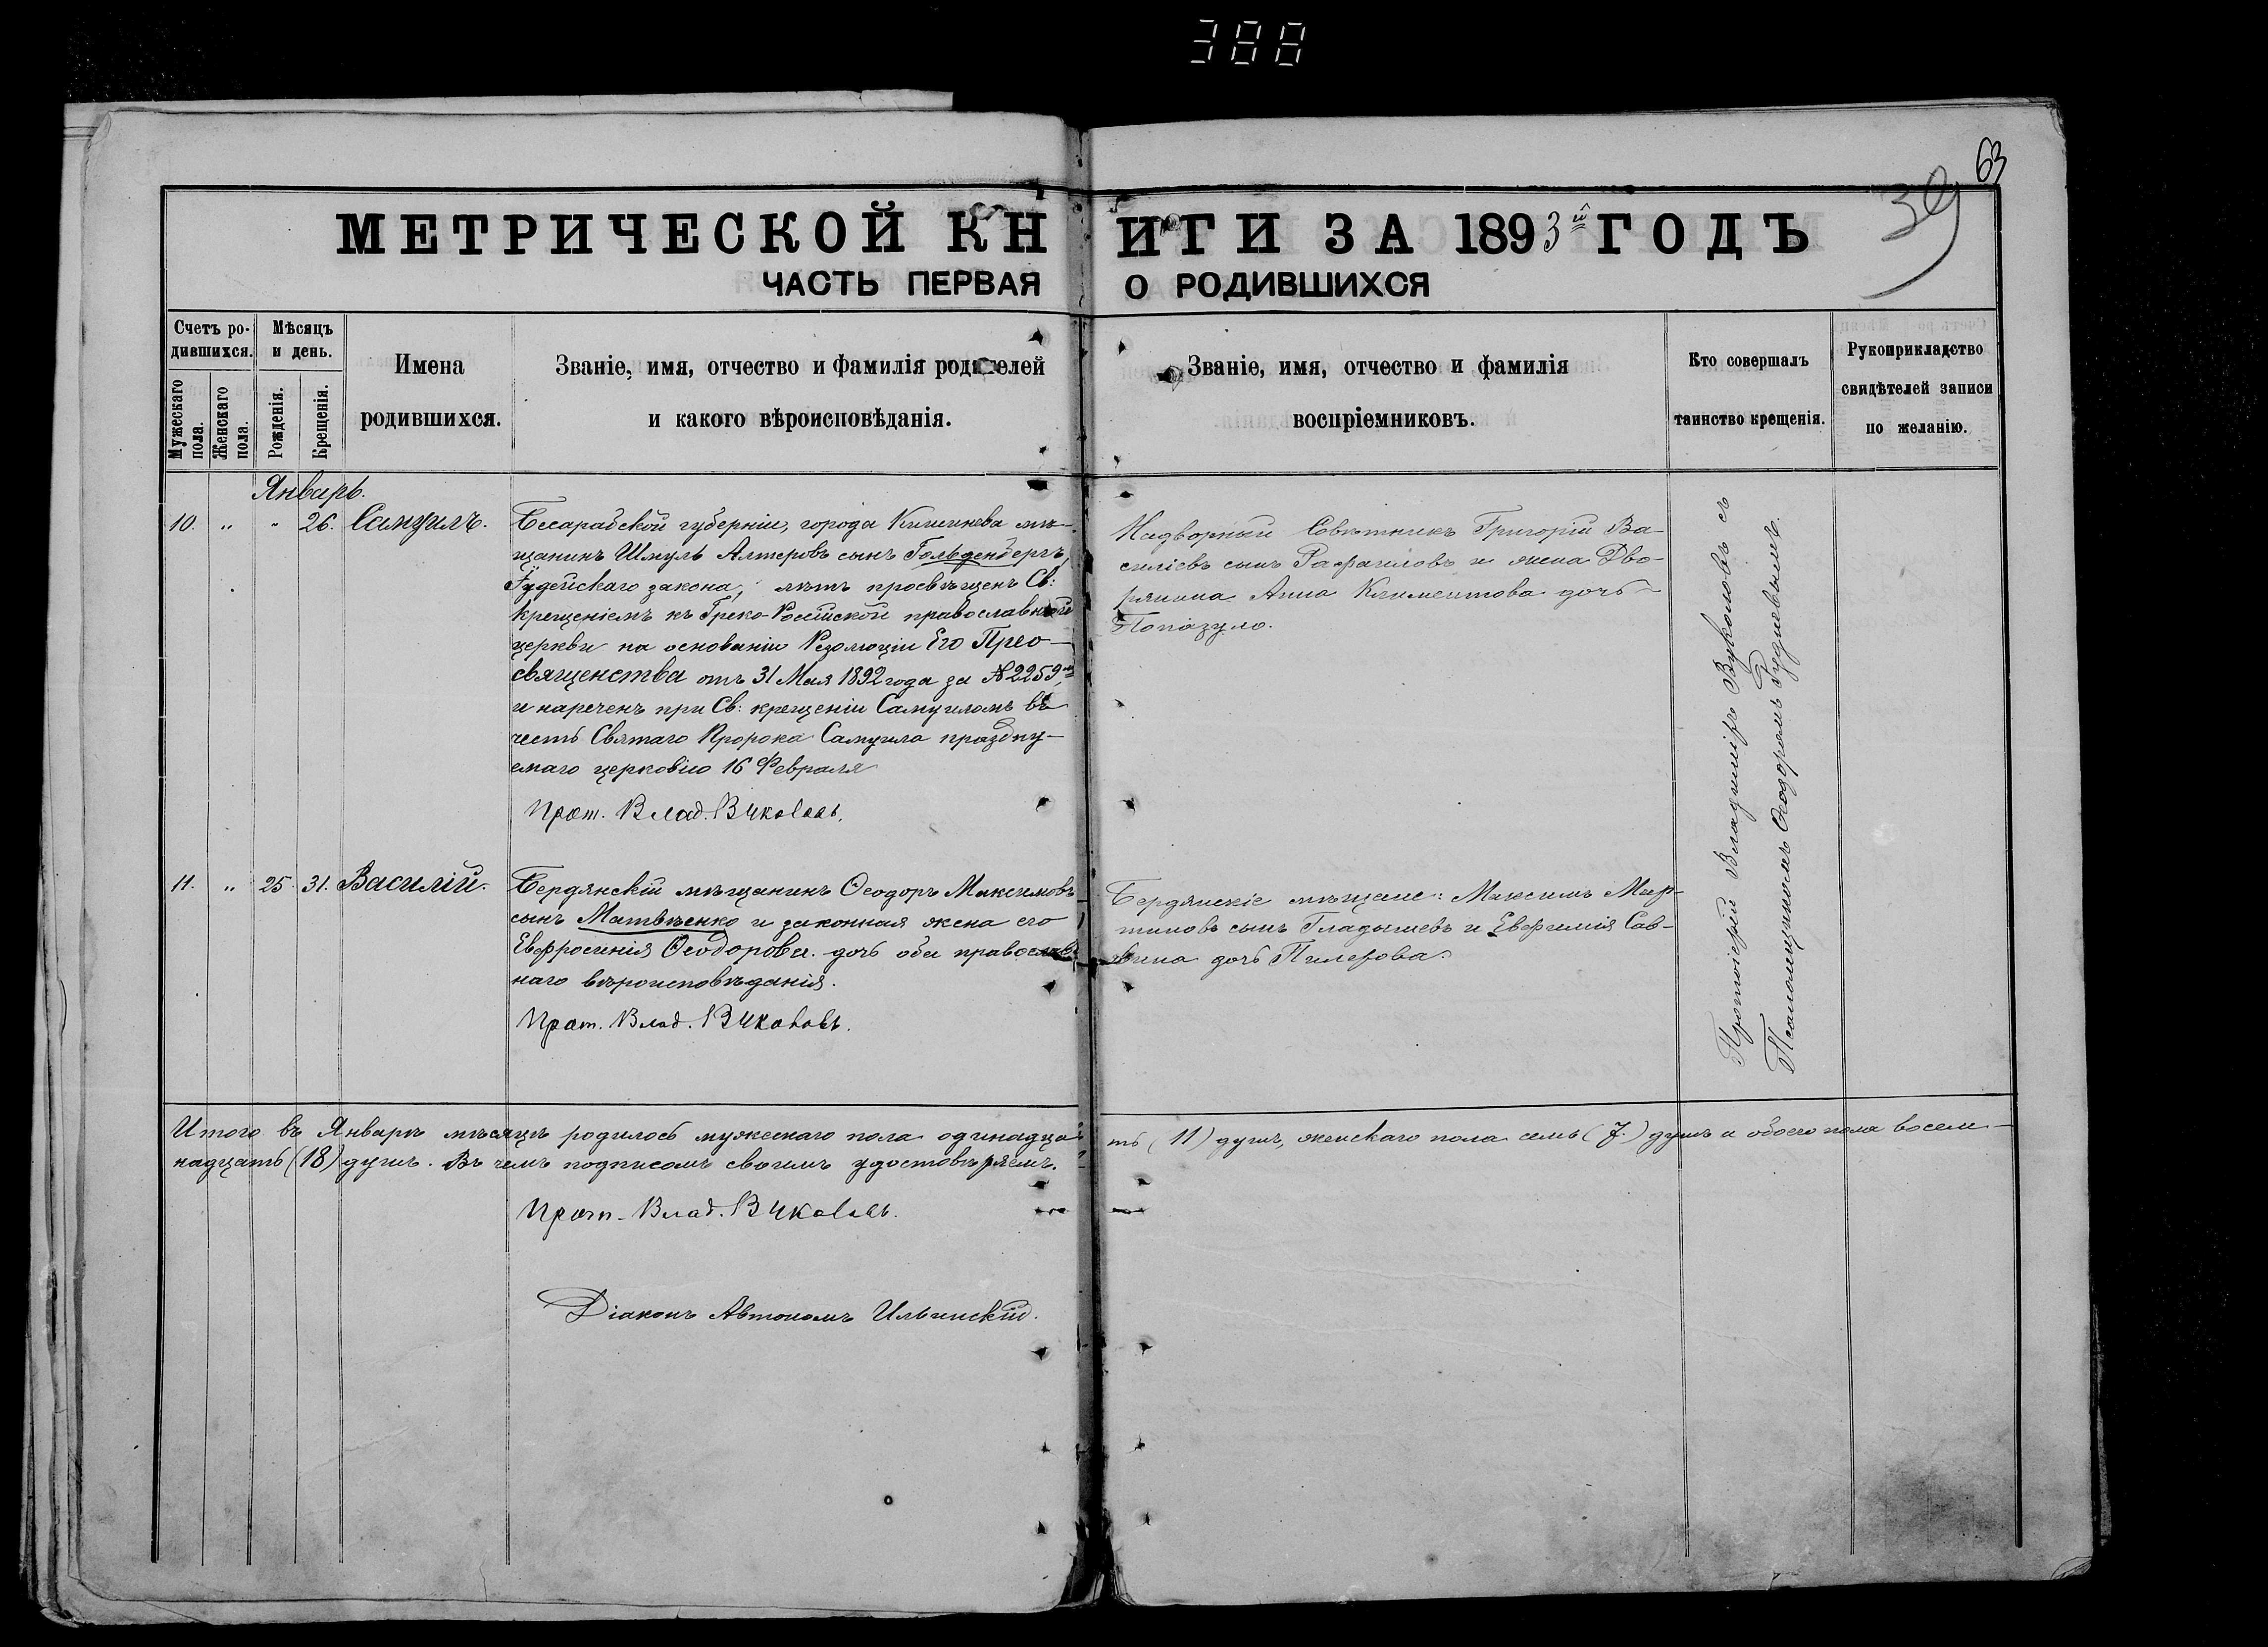 388
63
39
МЕТРИЧЕСКОЙ КНИГИ ЗА 1893й ГОДЪ
ЧАСТЬ ПЕРВАЯ О РОДИВШИХСЯ
Счетъ ро-
дившихся.
Мужескаго
пола.
Женскаго
пола.
Мѣсяцъ
и день.
Рожденія.
Крещенія.
Имена
родившихся.
Званіе, имя, отчество и фамилія родителей
и какого вѣроисповѣданія.
Званіе, имя, отчество и фамилія
воспріемниковъ.
Кто совершалъ
таинство крещенія.
Рукоприкладство
свидѣтелей записи
по желанію.
Январь.
10. „ „ 26. Самуилъ.
Бесарабской губерніи, города Кишинева мѣ-
щанинъ Шмуль Алтеровъ сынъ Гольденбергъ,
Іудейскаго закона, лѣтъ просвѣщенъ Св:
крещеніемъ къ Греко-Россійской православной
церкви на основаніи Резолюціи Его Прео-
священства отъ 31 Мая 1892 года за № 2259,
и нареченъ при Св: крещеніи Самуиломъ въ
честь Святаго Пророка Самуила праздну-
емаго церковію 16 Февраля
Прот. Влад. Вуколовъ.
Надворный Совѣтникъ Григорій Ва-
силіевъ сынъ Рафаиловъ и жена Дво-
рянина Анна Климентова дочь
Попазуло.
11. „ 25. 31. Василій.
Бердянскій мѣщанинъ Ѳеодоръ Максимовъ
сынъ Матвѣенко и законная жена его
Евфросинія Ѳеодорова дочь оба православ-
наго вѣроисповѣданія.
Прот. Влад. Вуколовъ.
Бердянскіе мѣщане: Максимъ Мар-
тиновъ сынъ Гладышевъ и Евфимія Сав-
вина дочь Пилерова.
Протоіерей Владиміръ Вуколовъ съ
Псаломщикомъ Ѳеодоромъ Гудиевымъ.
Итого въ Январѣ мѣсяцѣ родилось мужескаго пола одинадцать (11) душъ, женскаго пола семь (7) душъ и обоего пола восем-
надцать (18) душъ. Въ чемъ подписомъ своимъ удостовѣряемъ.
Прот. Влад. Вуколовъ.
Діаконъ Автономъ Ильинскій.